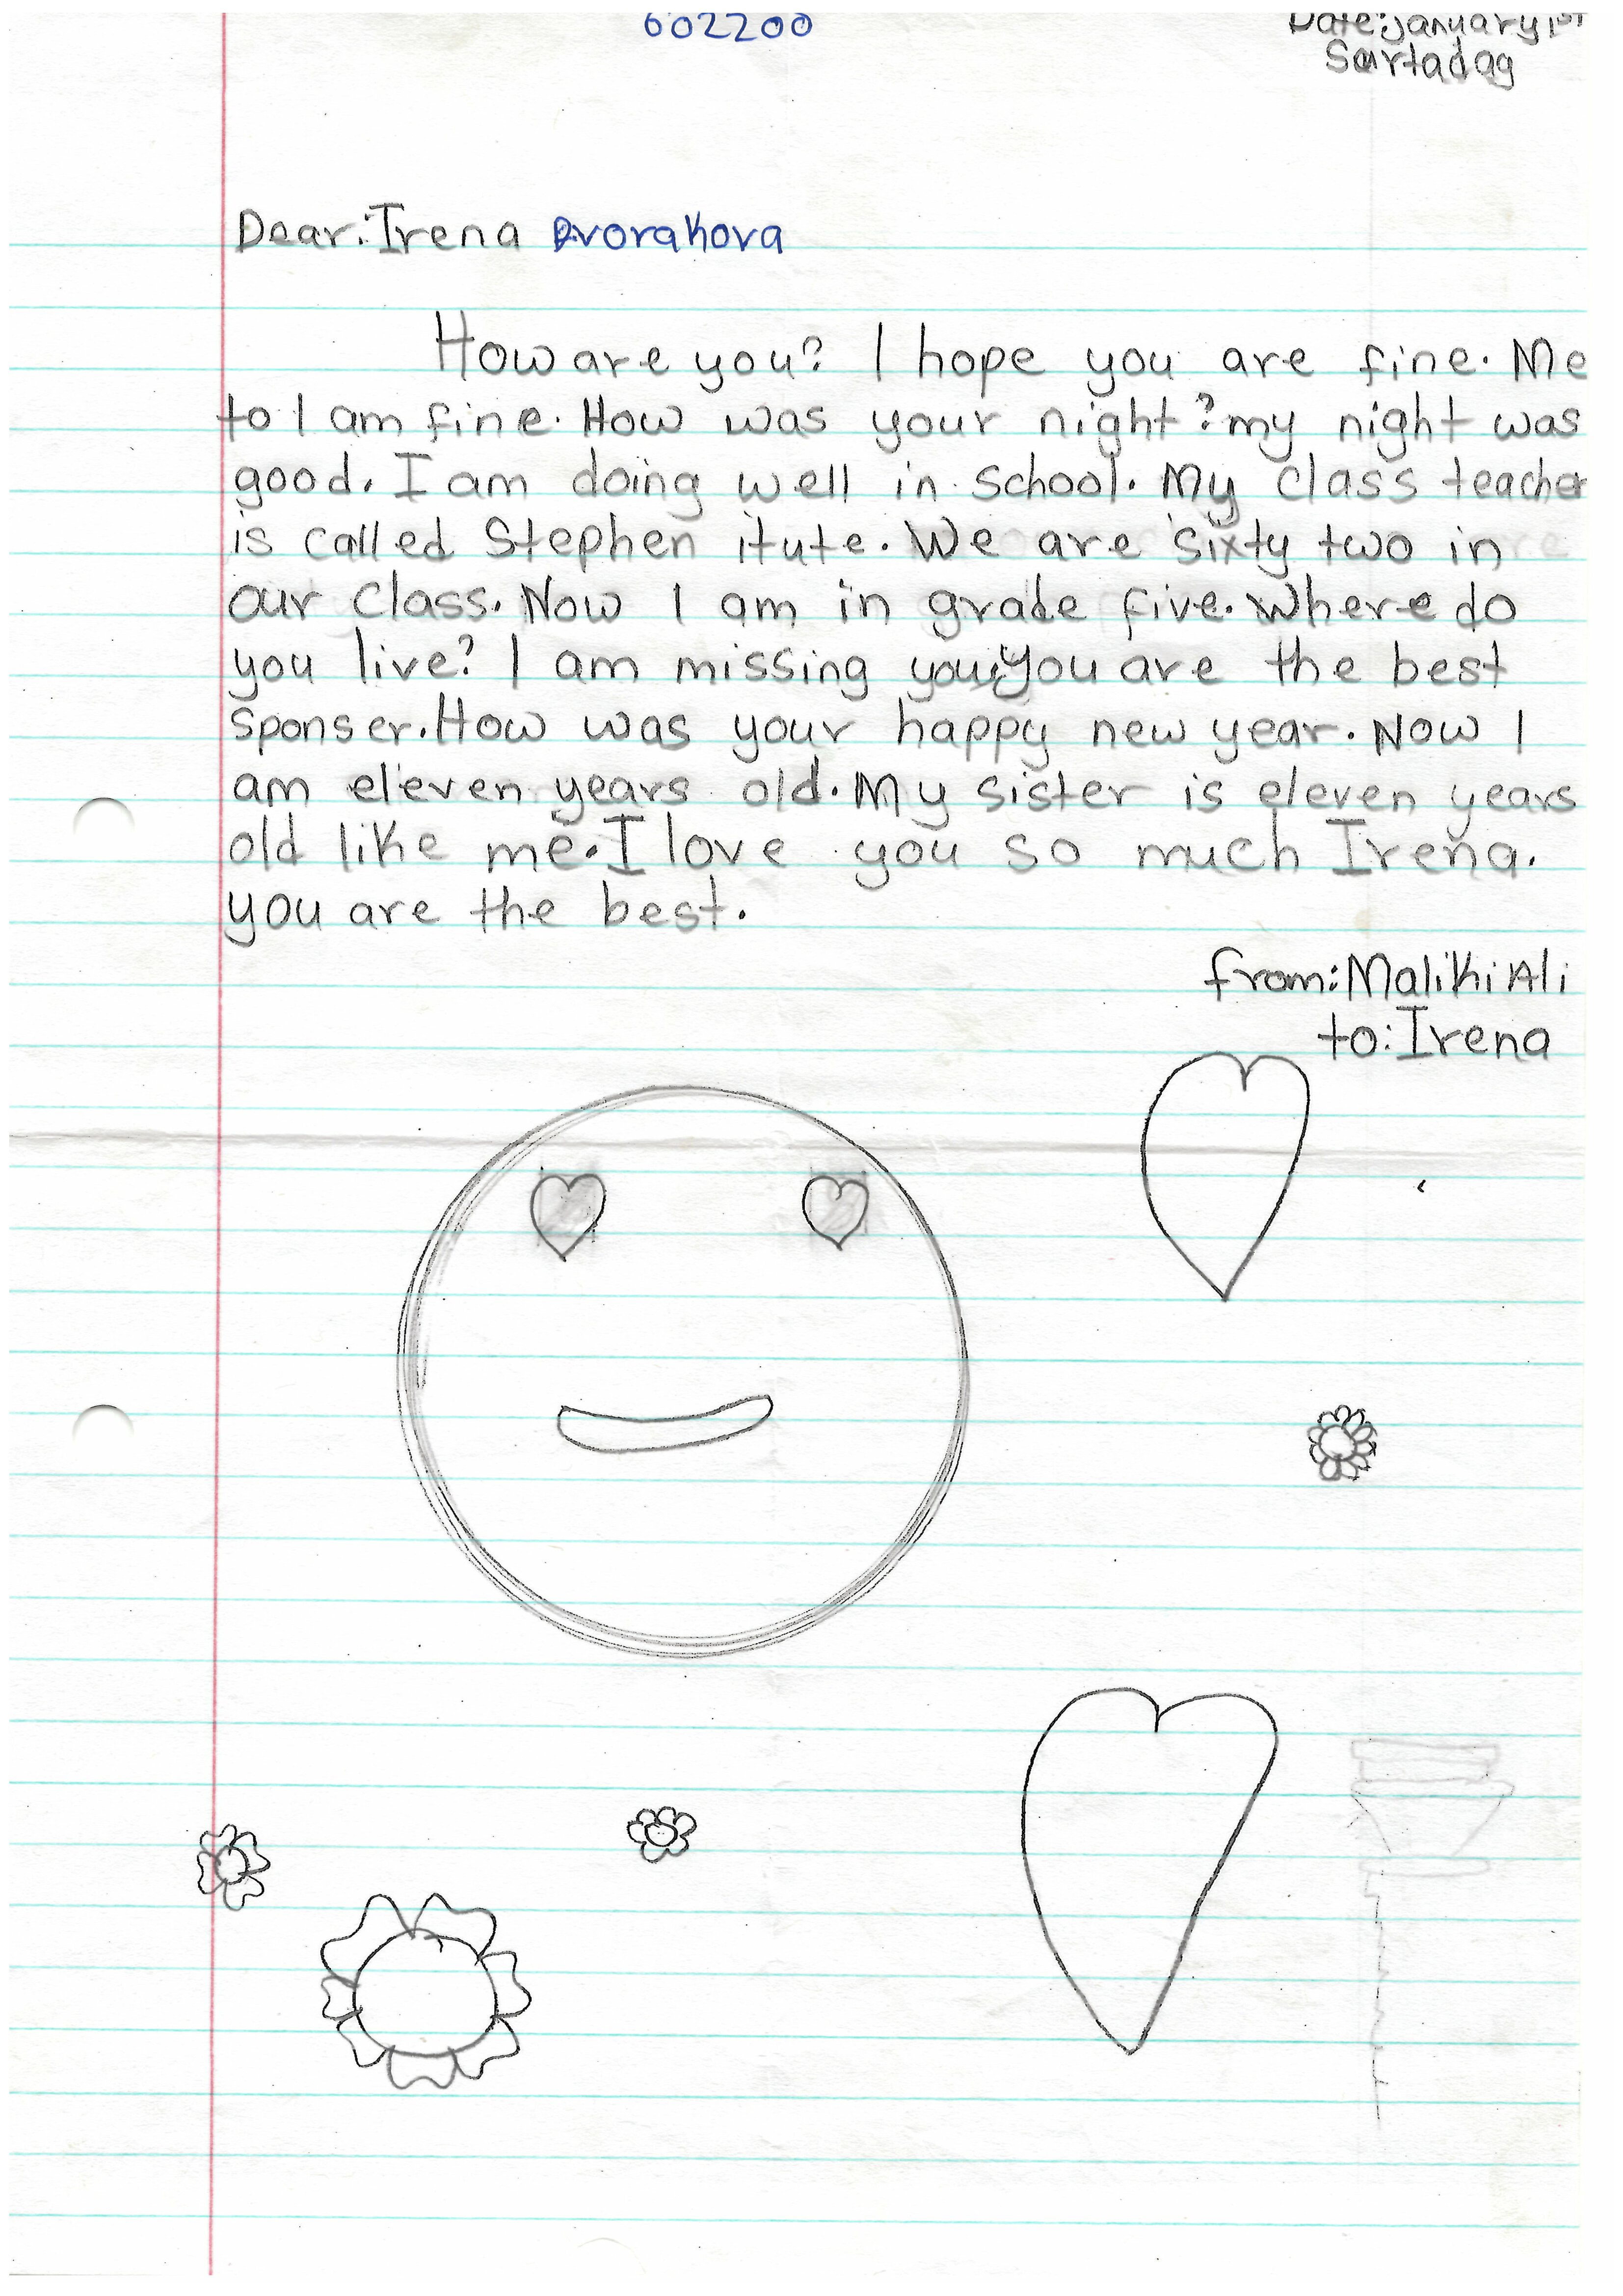 602200
Date:january 1st
Sartadag
Dear:Irena Dvorakova
How are you? I hope you are fine. Me
to I am fine. How was your night? my night was
good. I am doing well in school. My class teacher
is called Stephen itute. We are sixty two in
our class. Now I am in grade five. Where do
you live? I am missing you. You are the best
sponser. How was your happy new year. Now I
am eleven years old. My sister is eleven years
old like me. I love you so much Irena.
you are the best.
from: Maliki Ali
to: Irena